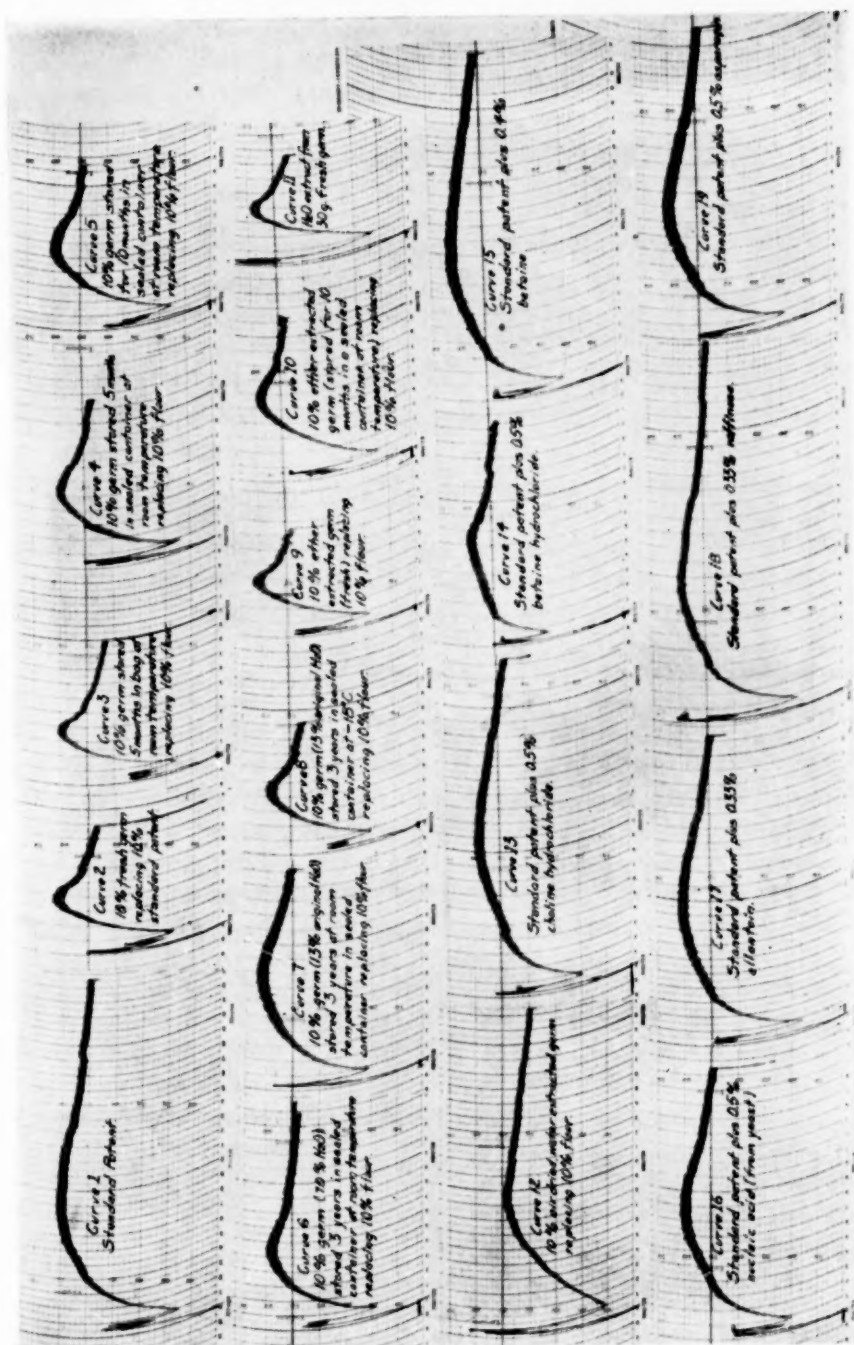 Curve 1
Standard Patent.
Curve 2
10% fresh germ
replacing 10%
standard patent
Curve 3
10% germ stored
5 months in bag at
room temperature
replacing 10% flour
Curve 4
10% germ stored 5 months
in sealed container at
room temperature
replacing 10% flour
Curve 5
10% germ stored
for 10 months in
sealed container
at room temperature
replacing 10% flour.
Curve 6
10% germ H2O)
stored 3 years in sealed
container at room temperature
replacing 10% flour.
Curve 7
10% germ (13% original H2O)
stored 3 years at room
temperature in sealed
container replacing 10% flour
Curve 8
10% germ (13% original H2O)
stored 3 years in sealed
container at -15°C
replacing 10% flour.
Curve 9
10% ether
extracted germ
(fresh) replacing
10% flour.
Curve 10
10% ether extracted
germ (stored for 10
months in a sealed
container at room
temperature) replacing
10% flour.
Curve 11
H2O extract from
30 g. fresh germ.
Curve 12
10% water extracted germ
replacing 10% flour
Curve 13
Standard patent plus 0.5%
choline hydrochloride.
Curve 14
Standard patent plus 0.5%
betaine hydrochloride.
Curve 15
Standard patent plus 0.4%
betaine
Curve 16
Standard patent plus 0.5%
nucleic acid (from yeast)
Curve 17
Standard patent plus 0.33%
allantoin.
Curve 18
Standard patent plus 0.33% raffinose.
Curve 19
Standard patent plus 0.5% asparagin